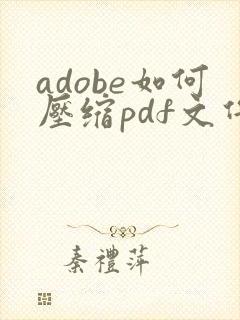 adobe如何
壓缩pdf文
秦禮萍